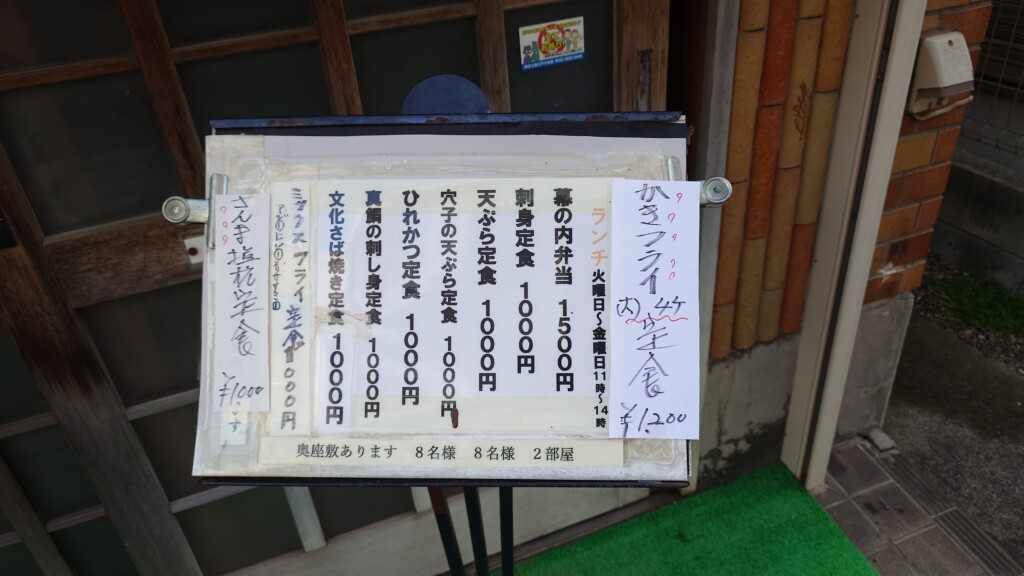 かきフライ
(大)4ケ
定食
¥1.200
ランチ 火曜日～金曜日11時～14時
幕の内弁当 1500円
刺身定食 1000円
天ぷら定食 1000円
穴子の天ぷら定食 1000円
ひれかつ定食 1000円
真鯛の刺し身定食 1000円
文化さば焼き定食 1000円
ミックスフライ定食1000円
さんま塩焼定食
¥1000
です
奥座敷あります 8名様 8名様 2部屋